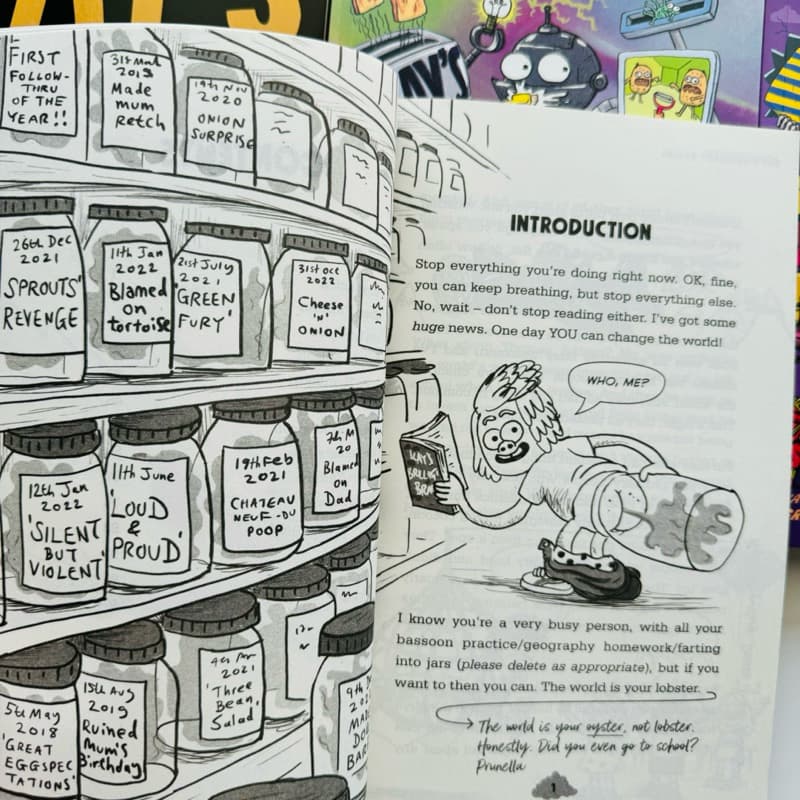 AY'S
FIRST
FOLLOW-
THRU
OF THE
YEAR!!
31st Mar
2019
Made
mum
retch
19th Nov
2020
ONION
SURPRISE
26th Dec
2021
'SPROUTS'
REVENGE
11th Jan
2022
Blamed
on
tortoise
21st July
2021
'GREEN
FURY'
31st oct
2022
Cheese
'N'
ONION
12th Jan
2022
'SILENT
BUT
VIOLENT'
11th June
'LOUD
&
PROUD'
19th Feb
2021
CHATEAU
NEUF-DU
POOP
20
Blamed
on
Dad
5th May
2018
'GREAT
EGGSPEC
TATIONS'
15th Aug
2019
Ruined
Mum's
Birthday
2021
'Three
Bean
Salad'
9th
INTRODUCTION
Stop everything you're doing right now. OK, fine,
you can keep breathing, but stop everything else.
No, wait – don't stop reading either. I've got some
huge news. One day YOU can change the world!
WHO, ME?
KAY'S
I know you're a very busy person, with all your
bassoon practice/geography homework/farting
into jars (please delete as appropriate), but if you
want to then you can. The world is your lobster.
The world is your oyster, not lobster.
Honestly. Did you even go to school?
Prunella
1